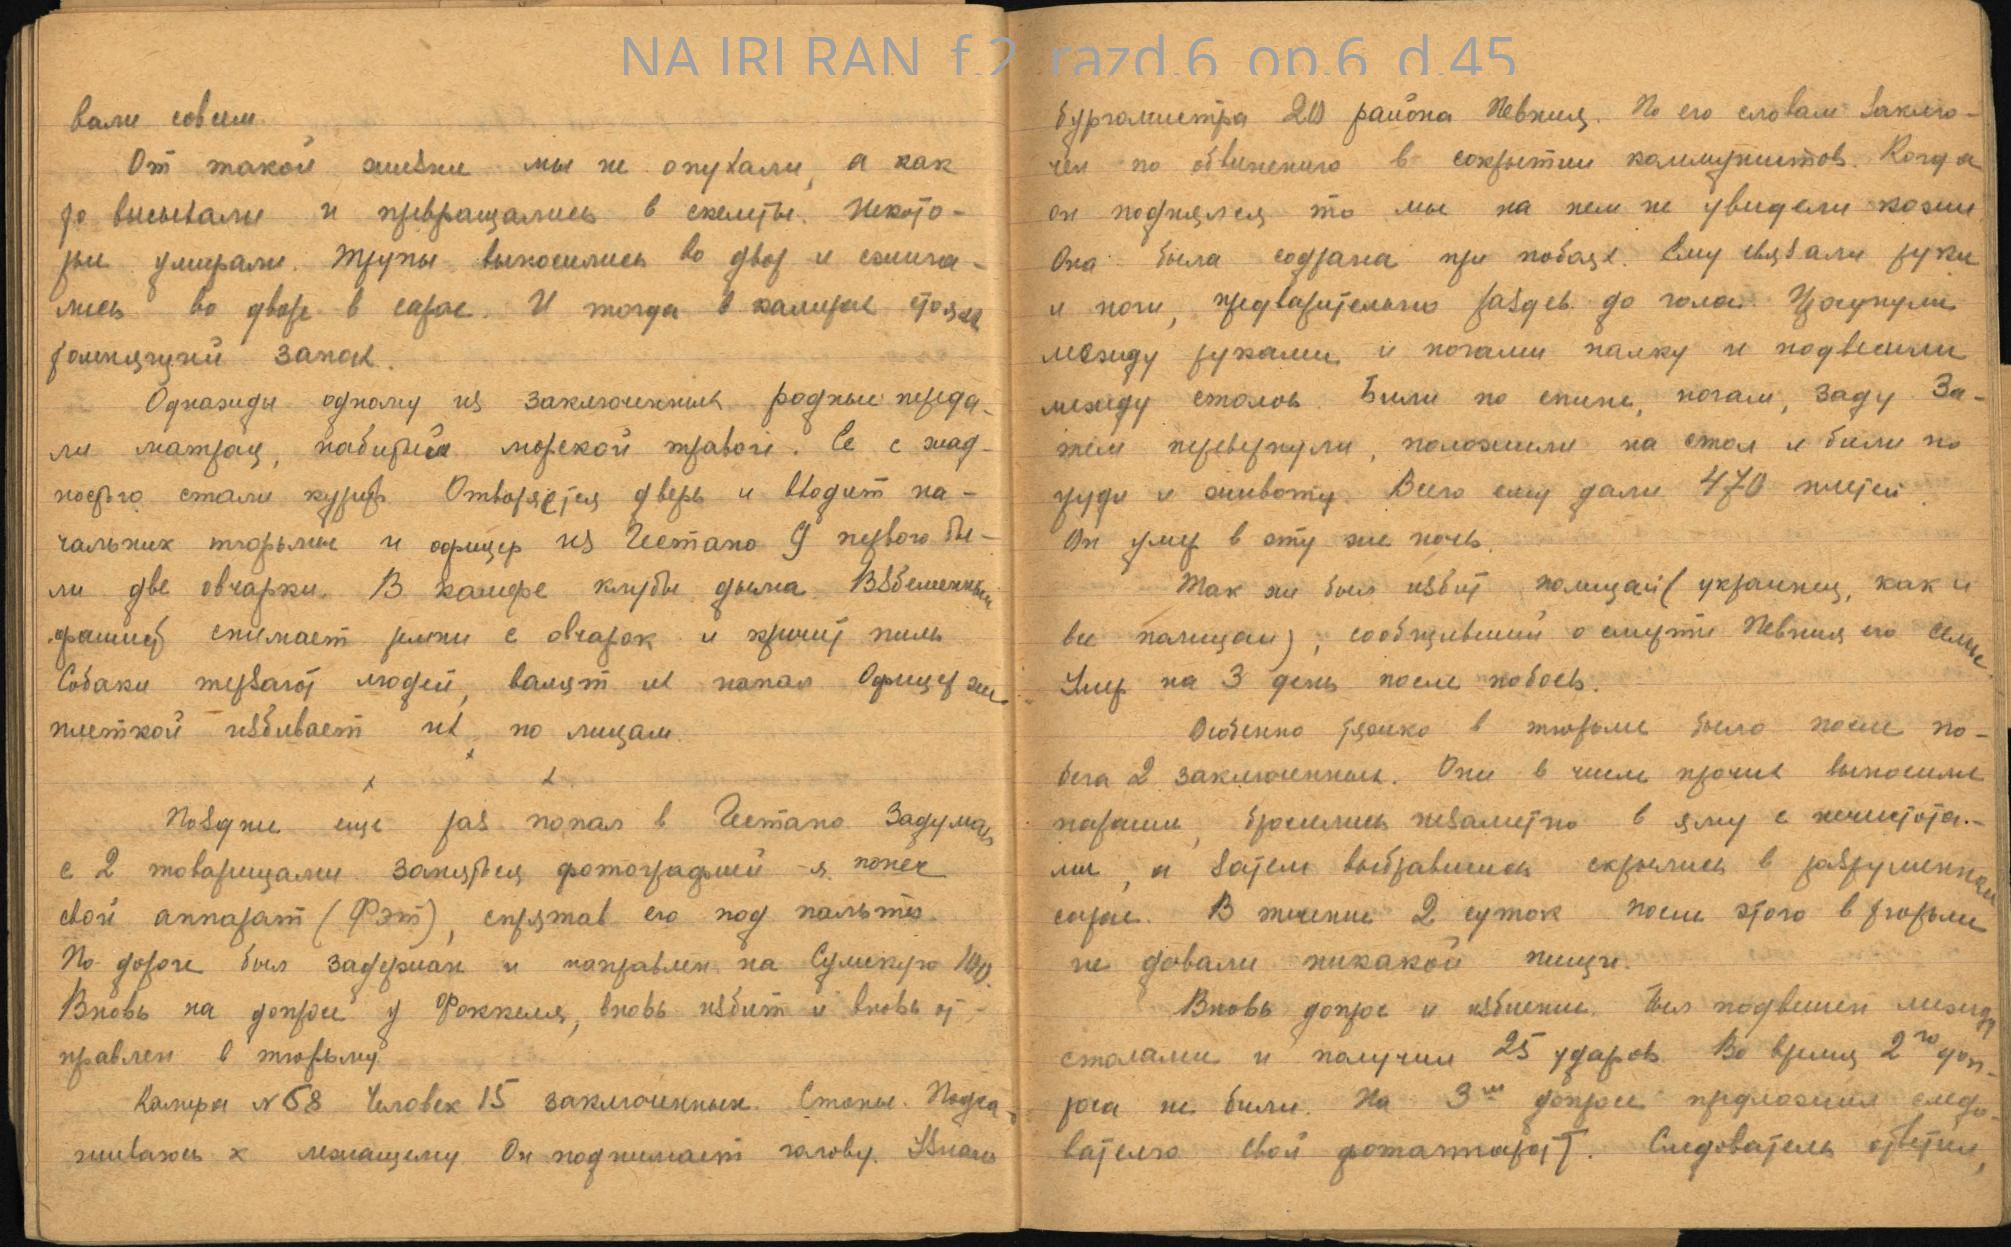 NA IRI RAN f.2 razd.6 op.6 d.45
вали совсем
От такой жизни мы не опухали, а как
то высыхали и превращались в скелеты. Некото-
рые умирали. Трупы выносились во двор и сжига-
лись во дворе в сарае. И тогда в камерах стоял
запах.
Однажды одному из заключенных родные переда-
ли матрац, набитый морской травой. Ее с жад-
ностью стали курить. Отворяется дверь и входит на-
чальник тюрьмы и офицер из Гестапо У первого бы-
ли две овчарки. В камере клубы дыма. Взбешенный
фашист снимает цепи с овчарок и кричит пиль
Собаки терзают людей, валят их на пол Офицер же
плеткой избивает их по лицам.
х х х
Позднее еще раз попал в Гестапо Задумав
с 2 товарищами заняться фотографией я понес
свой аппарат (Фэт), спрятав его под пальто.
По дороге был задержан и направлен на Сумскую 100.
Вновь на допросе у Фоккеля, вновь избит и вновь от-
правлен в тюрьму.
Камера №58 Человек 15 заключенных. Стоны. Подса-
живаюсь к лежащему Он поднимает голову. Узнаю
бургомистра 20 района Певния. По его словам заклю-
чен по обвинению в сокрытии коммунистов. Когда
он поднялся то мы на нем не увидели кожи
Она была содрана при побоях. Ему связали руки
и ноги, предварительно раздев до гола. Просунули
между руками и ногами палку и подвесили
между столов. Били по спине, ногам, заду За-
тем перевернули, положили на стол и били по
груди и животу. Всего ему дали 470 плетей.
Он умер в эту же ночь.
Так же был избит полицай (украинец, как и
все полицаи), сообщивший о смерти Певния его семье.
Умер на 3 день после побоев.
Особенно тяжко в тюрьме было после по-
бега 2 заключенных. Они в числе прочих выносили
параши, бросились незаметно в яму с нечистота-
ми, и затем выбравшись скрылись в разрушенном
сарае. В течение 2 суток после этого в тюрьме
не давали никакой пищи.
Вновь допрос и избиение. Был подвешен между
столами и получил 25 ударов. Во время 2го доп-
роса не били. На 3м допросе предложил следо-
вателю свой фотаппарат. Следователь ответил,